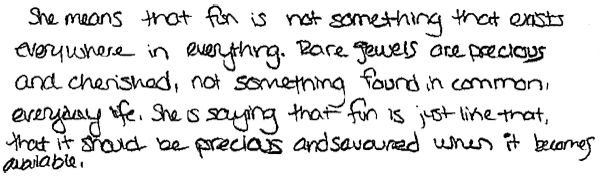 She means that fun is not something that exists
everywhere in everything. Rare jewels are precious
and cherished, not something found in common,
everyday life. She is saying that fun is just like that,
that it should be precious and savoured when it becomes
available.